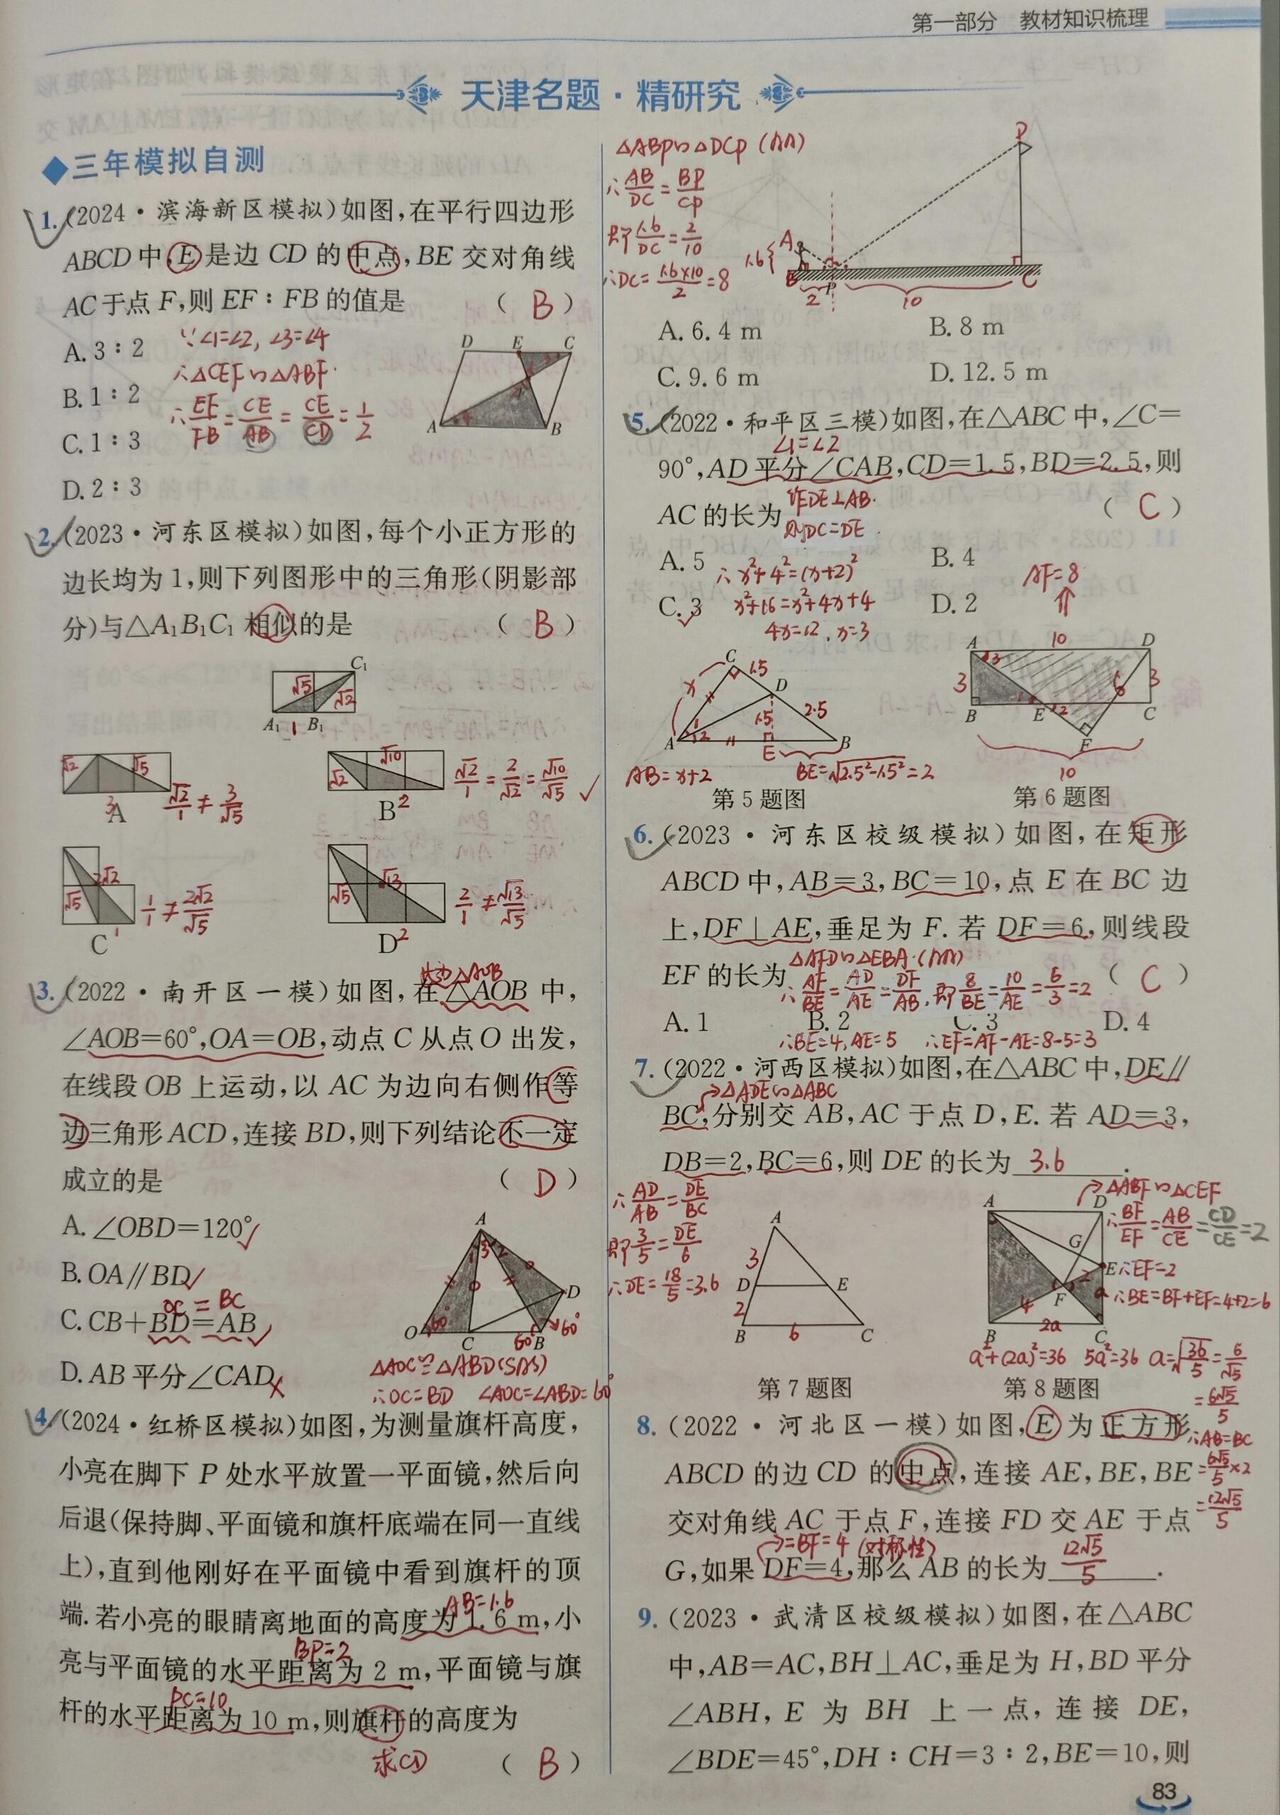 第一部分 教材知识梳理
天津名题·精研究
◆三年模拟自测
1.(2024·滨海新区模拟)如图,在平行四边形
ABCD中,E是边CD的中点,BE交对角线
AC于点F,则EF∶FB的值是 ( B )
A.3∶2
B.1∶2
C.1∶3
D.2∶3
∵∠1=∠2,∠3=∠4
∴△CEF∽△ABF.
∴EF/FB=CE/AB=CE/CD=1/2
D E C
A B
2.(2023·河东区模拟)如图,每个小正方形的
边长均为1,则下列图形中的三角形(阴影部
分)与△A₁B₁C₁相似的是 ( B )
C₁
√5 √2
A₁ 1 B₁
√2 √5
3
A
√2/1≠3/√5
√2 √10
B 2
√2/1=2/√2=√10/√5 ✓
√5 2√2
C 1
1/1≠2√2/√5
√5 √13
D 2
2/1≠√13/√5
3.(2022·南开区一模)如图,在△AOB中,
∠AOB=60°,OA=OB,动点C从点O出发,
在线段OB上运动,以AC为边向右侧作等
边三角形ACD,连接BD,则下列结论不一定
成立的是 ( D )
A.∠OBD=120°✓
B.OA∥BD✓
OC=BC
C.CB+BD=AB✓
D.AB平分∠CAD×
A
D
O C B
60° 60° 60°
△AOC≌△ABD(SAS)
∴OC=BD ∠AOC=∠ABD=60°
4.(2024·红桥区模拟)如图,为测量旗杆高度,
小亮在脚下P处水平放置一平面镜,然后向
后退(保持脚、平面镜和旗杆底端在同一直线
上),直到他刚好在平面镜中看到旗杆的顶
端.若小亮的眼睛离地面的高度为1.6 m,小
AB=1.6
亮与平面镜的水平距离为2 m,平面镜与旗
BP=2
杆的水平距离为10 m,则旗杆的高度为
PC=10
求CD ( B )
△ABP∽△DCP(AA)
∴AB/DC=BP/CP
即1.6/DC=2/10
∴DC=1.6×10/2=8
D
A
1.6
B 2 P 10 C
A.6.4 m B.8 m
C.9.6 m D.12.5 m
5.(2022·和平区三模)如图,在△ABC中,∠C=
∠1=∠2
90°,AD平分∠CAB,CD=1.5,BD=2.5,则
AC的长为 ( C )
作DE⊥AB.
则DC=DE
A.5 B.4
C.3 D.2
∴x²+4²=(x+2)²
x²+16=x²+4x+4
4x=12,x=3
AF=8
C 1.5 D
x 1.5 2.5
A E B
AB=x+2 BE=√2.5²-1.5²=2
第5题图
A 10 D
3 3
B E C
F
10
第6题图
6.(2023·河东区校级模拟)如图,在矩形
ABCD中,AB=3,BC=10,点E在BC边
上,DF⊥AE,垂足为F.若DF=6,则线段
△AFD∽△EBA.(AA)
EF的长为 ( C )
∴AF/BE=AD/AE=DF/AB,即8/BE=10/AE=6/3=2
A.1 B.2 C.3 D.4
∴BE=4,AE=5 ∴EF=AF-AE=8-5=3
7.(2022·河西区模拟)如图,在△ABC中,DE∥
→△ADE∽△ABC
BC,分别交AB,AC于点D,E.若AD=3,
DB=2,BC=6,则DE的长为 3.6 .
∴AD/AB=DE/BC
即3/5=DE/6
∴DE=18/5=3.6
A
3
D E
2
B 6 C
第7题图
A D
G
E
F
4 2 a
B 2a C
第8题图
→△ABF∽△CEF
∴BF/EF=AB/CE=CD/CE=2
∴EF=2
∴BE=BF+EF=4+2=6
a²+(2a)²=36 5a²=36 a=√36/5=6/√5
=6√5/5
∴AB=BC
=6√5/5×2
=12√5/5
8.(2022·河北区一模)如图,E为正方形
ABCD的边CD的中点,连接AE,BE,BE
交对角线AC于点F,连接FD交AE于点
→=BF=4(对称性)
G,如果DF=4,那么AB的长为 12√5/5 .
9.(2023·武清区校级模拟)如图,在△ABC
中,AB=AC,BH⊥AC,垂足为H,BD平分
∠ABH,E为BH上一点,连接DE,
∠BDE=45°,DH∶CH=3∶2,BE=10,则
83